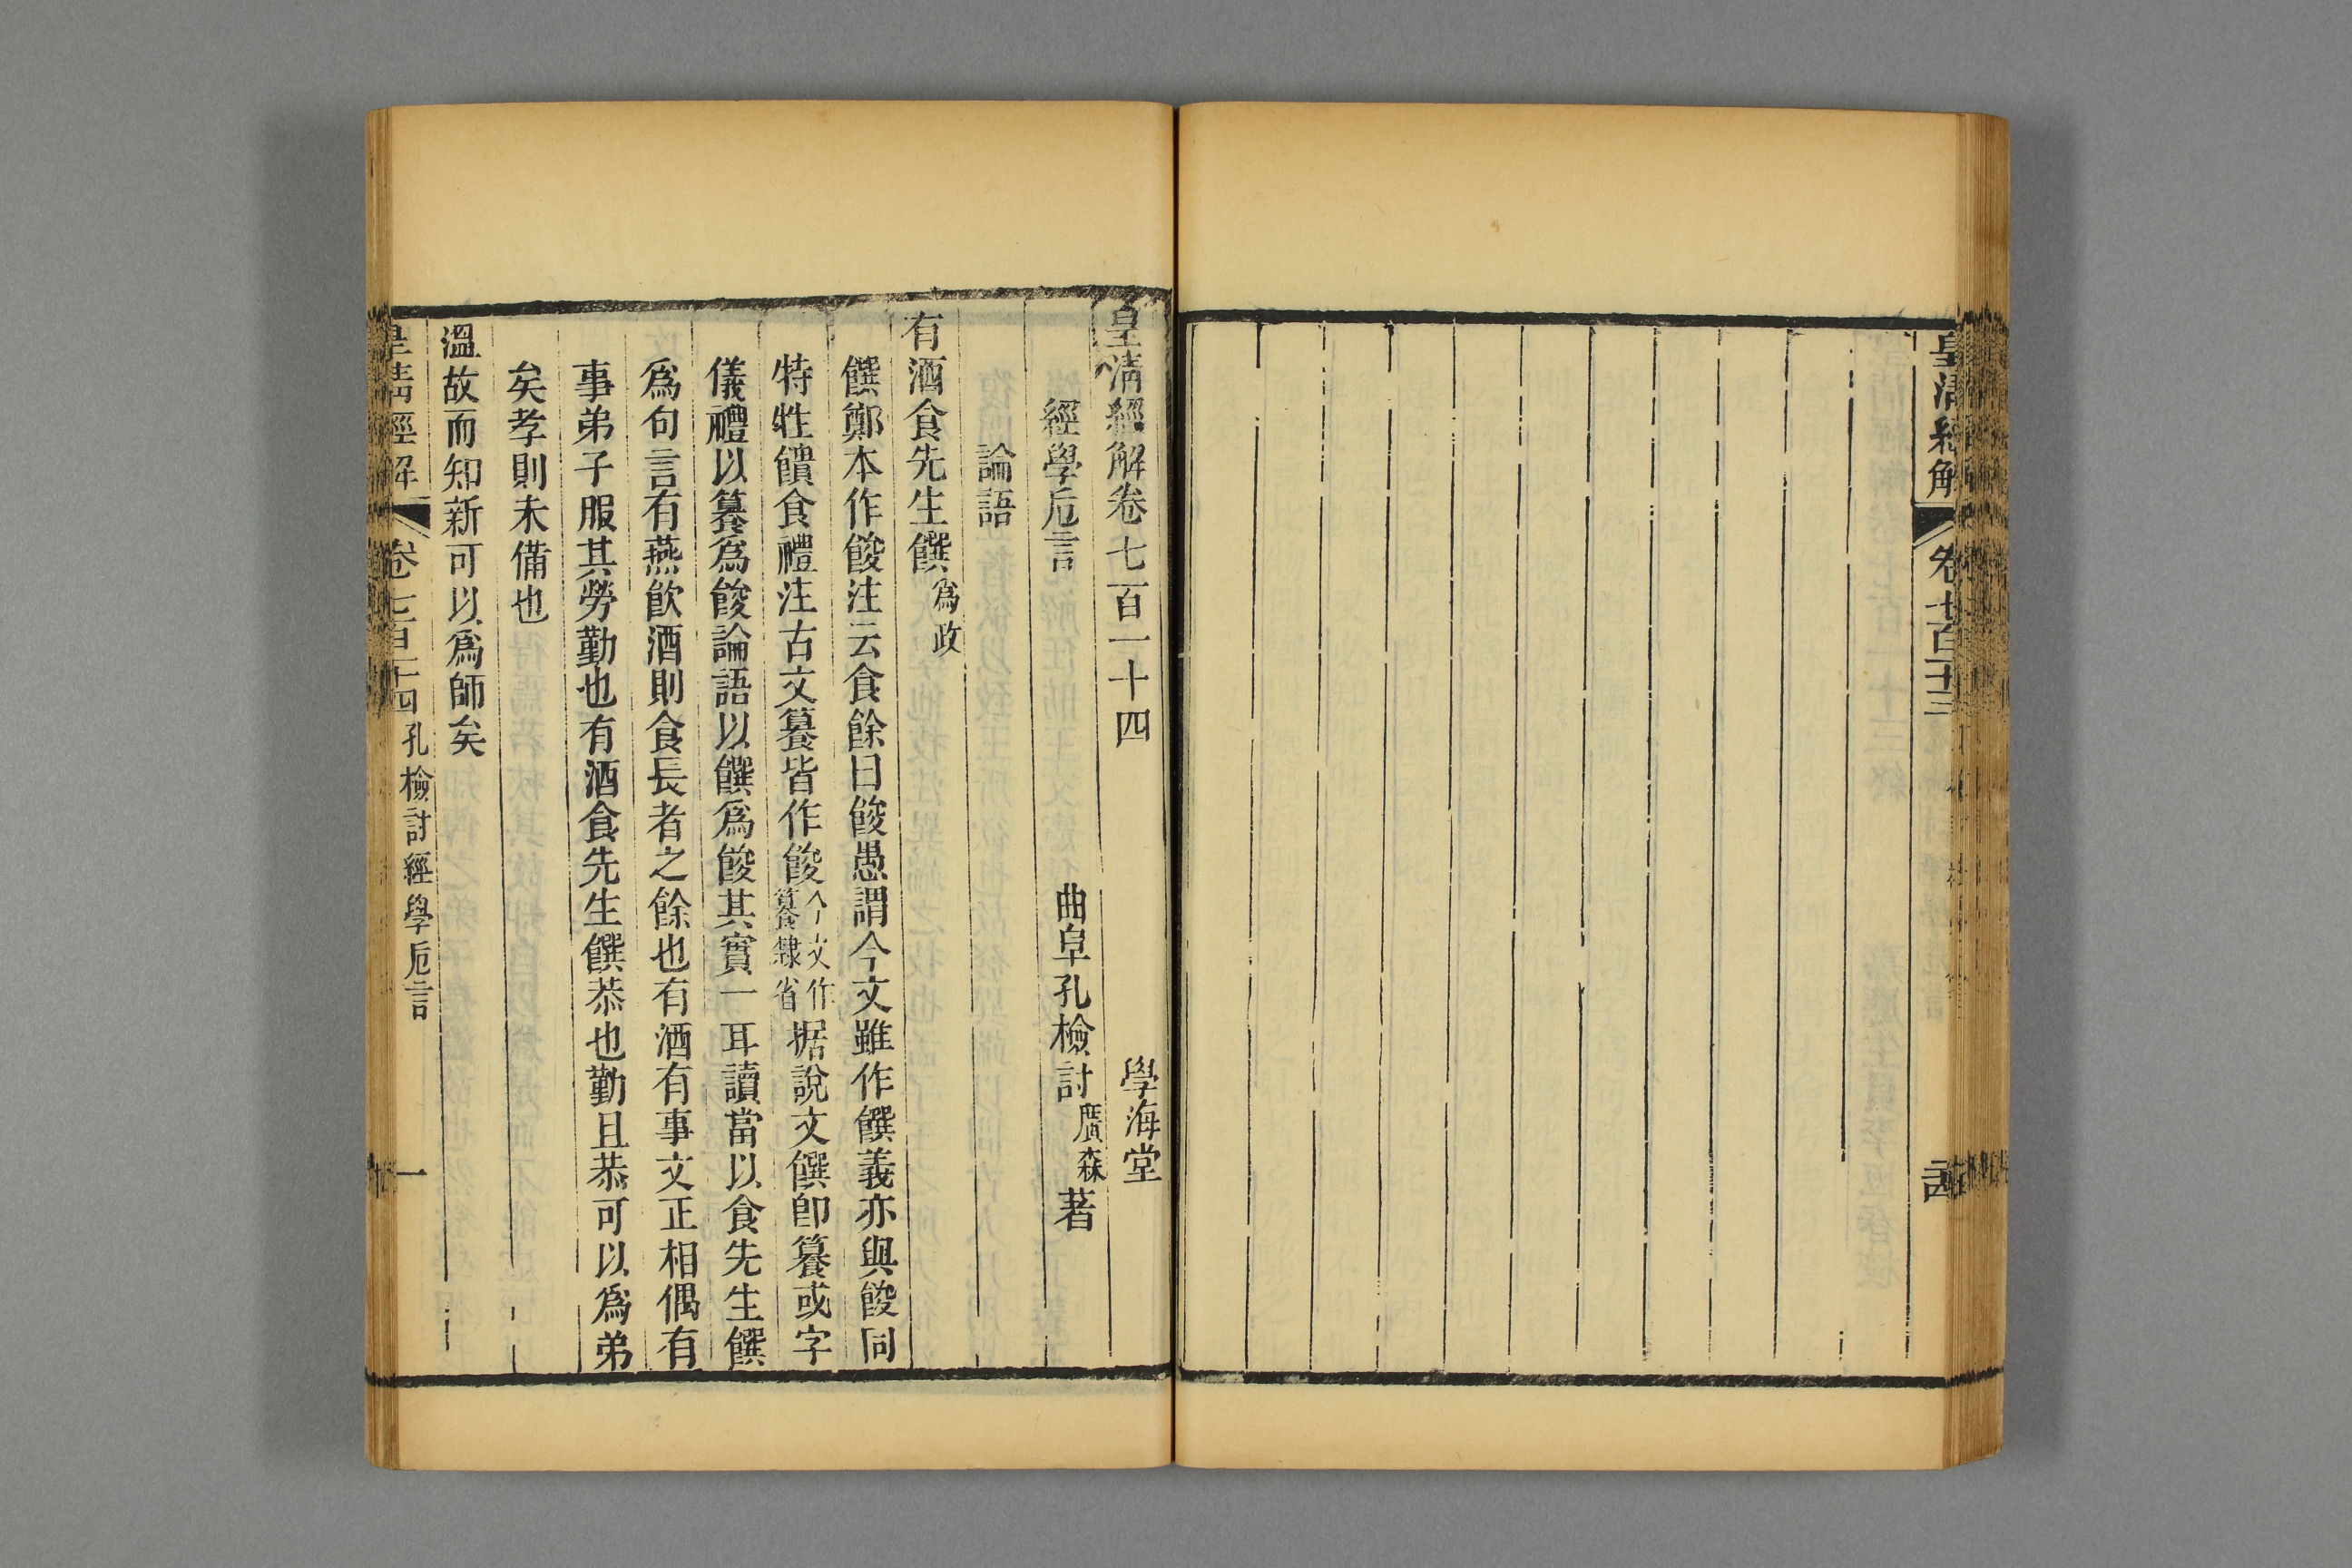 皇清經解
卷七百十三
皇清經解卷七百一十四
學海堂
經學卮言
曲阜孔檢討廣森著
論語
有酒食先生饌為政
饌鄭本作餕注云食餘曰餕愚謂今文雖作饌義亦與餕同
特牲饋食禮注古文籑皆作餕今文作籑隸省据說文饌卽籑或字
儀禮以籑爲餕論語以饌爲餕其實一耳讀當以食先生饌
爲句言有燕飮酒則食長者之餘也有酒有事文正相偶有
事弟子服其勞勤也有酒食先生饌恭也勤且恭可以爲弟
矣孝則未備也
溫故而知新可以爲師矣
皇清經解
卷七百十四
孔檢討經學卮言
一